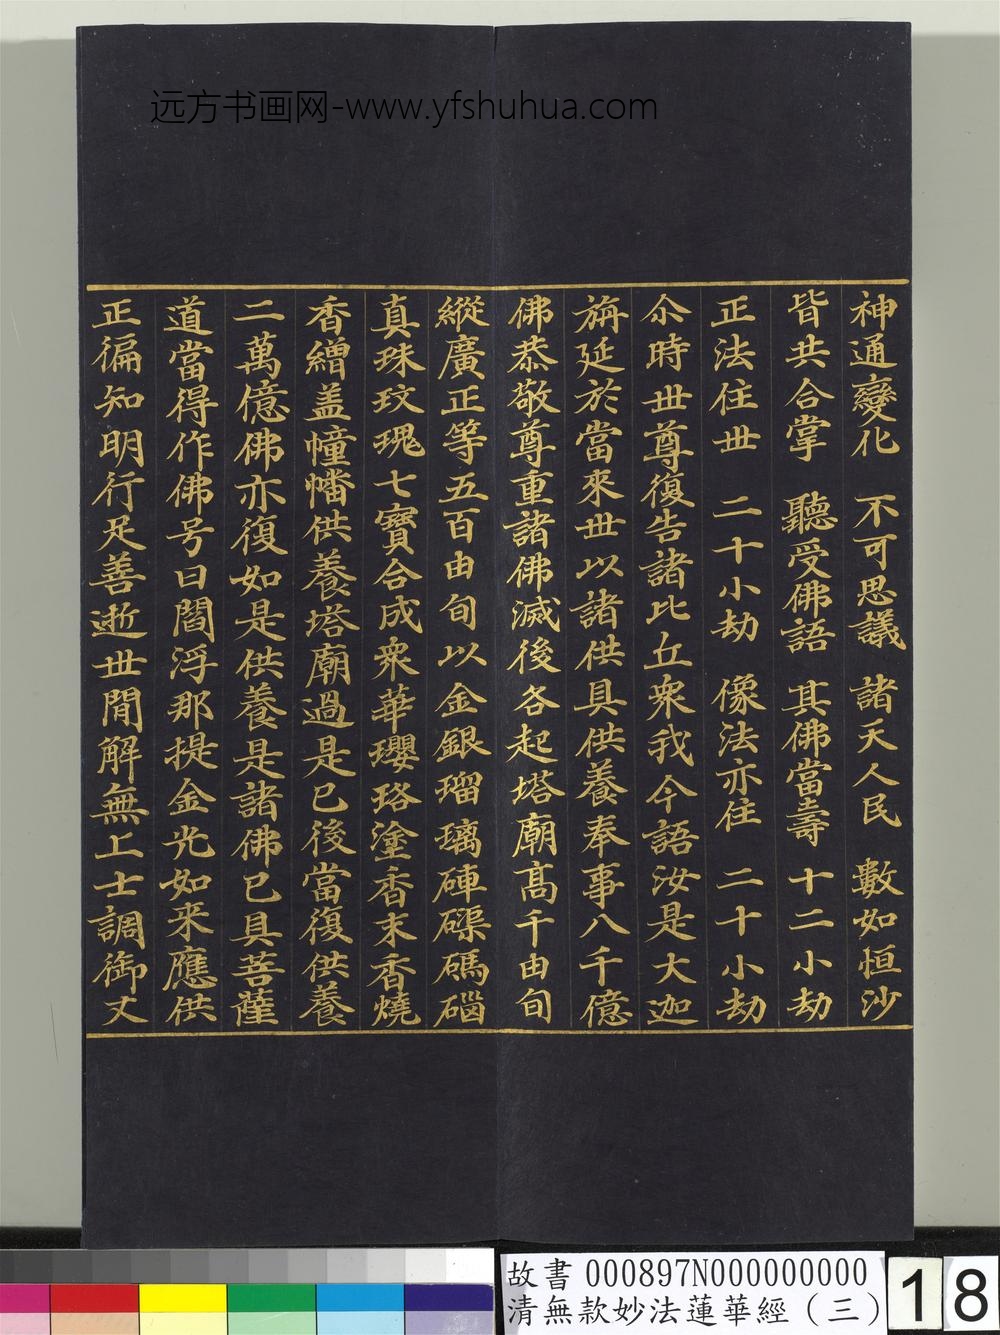 远方书画网-www.yfshuhua.com
神通變化 不可思議 諸天人民 數如恒沙
皆共合掌 聽受佛語 其佛當壽 十二小劫
正法住世 二十小劫 像法亦住 二十小劫
尒時世尊復告諸比丘衆我今語汝是大迦
旃延於當來世以諸供具供養奉事八千億
佛恭敬尊重諸佛滅後各起塔廟高千由旬
縱廣正等五百由旬以金銀瑠璃硨磲碼碯
真珠玫瑰七寶合成衆華瓔珞塗香末香燒
香繒盖幢幡供養塔廟過是已後當復供養
二萬億佛亦復如是供養是諸佛已具菩薩
道當得作佛号曰閻浮那提金光如来應供
正徧知明行足善逝世間解無上士調御丈
故書 000897N000000000
清無款妙法蓮華經（三）
18